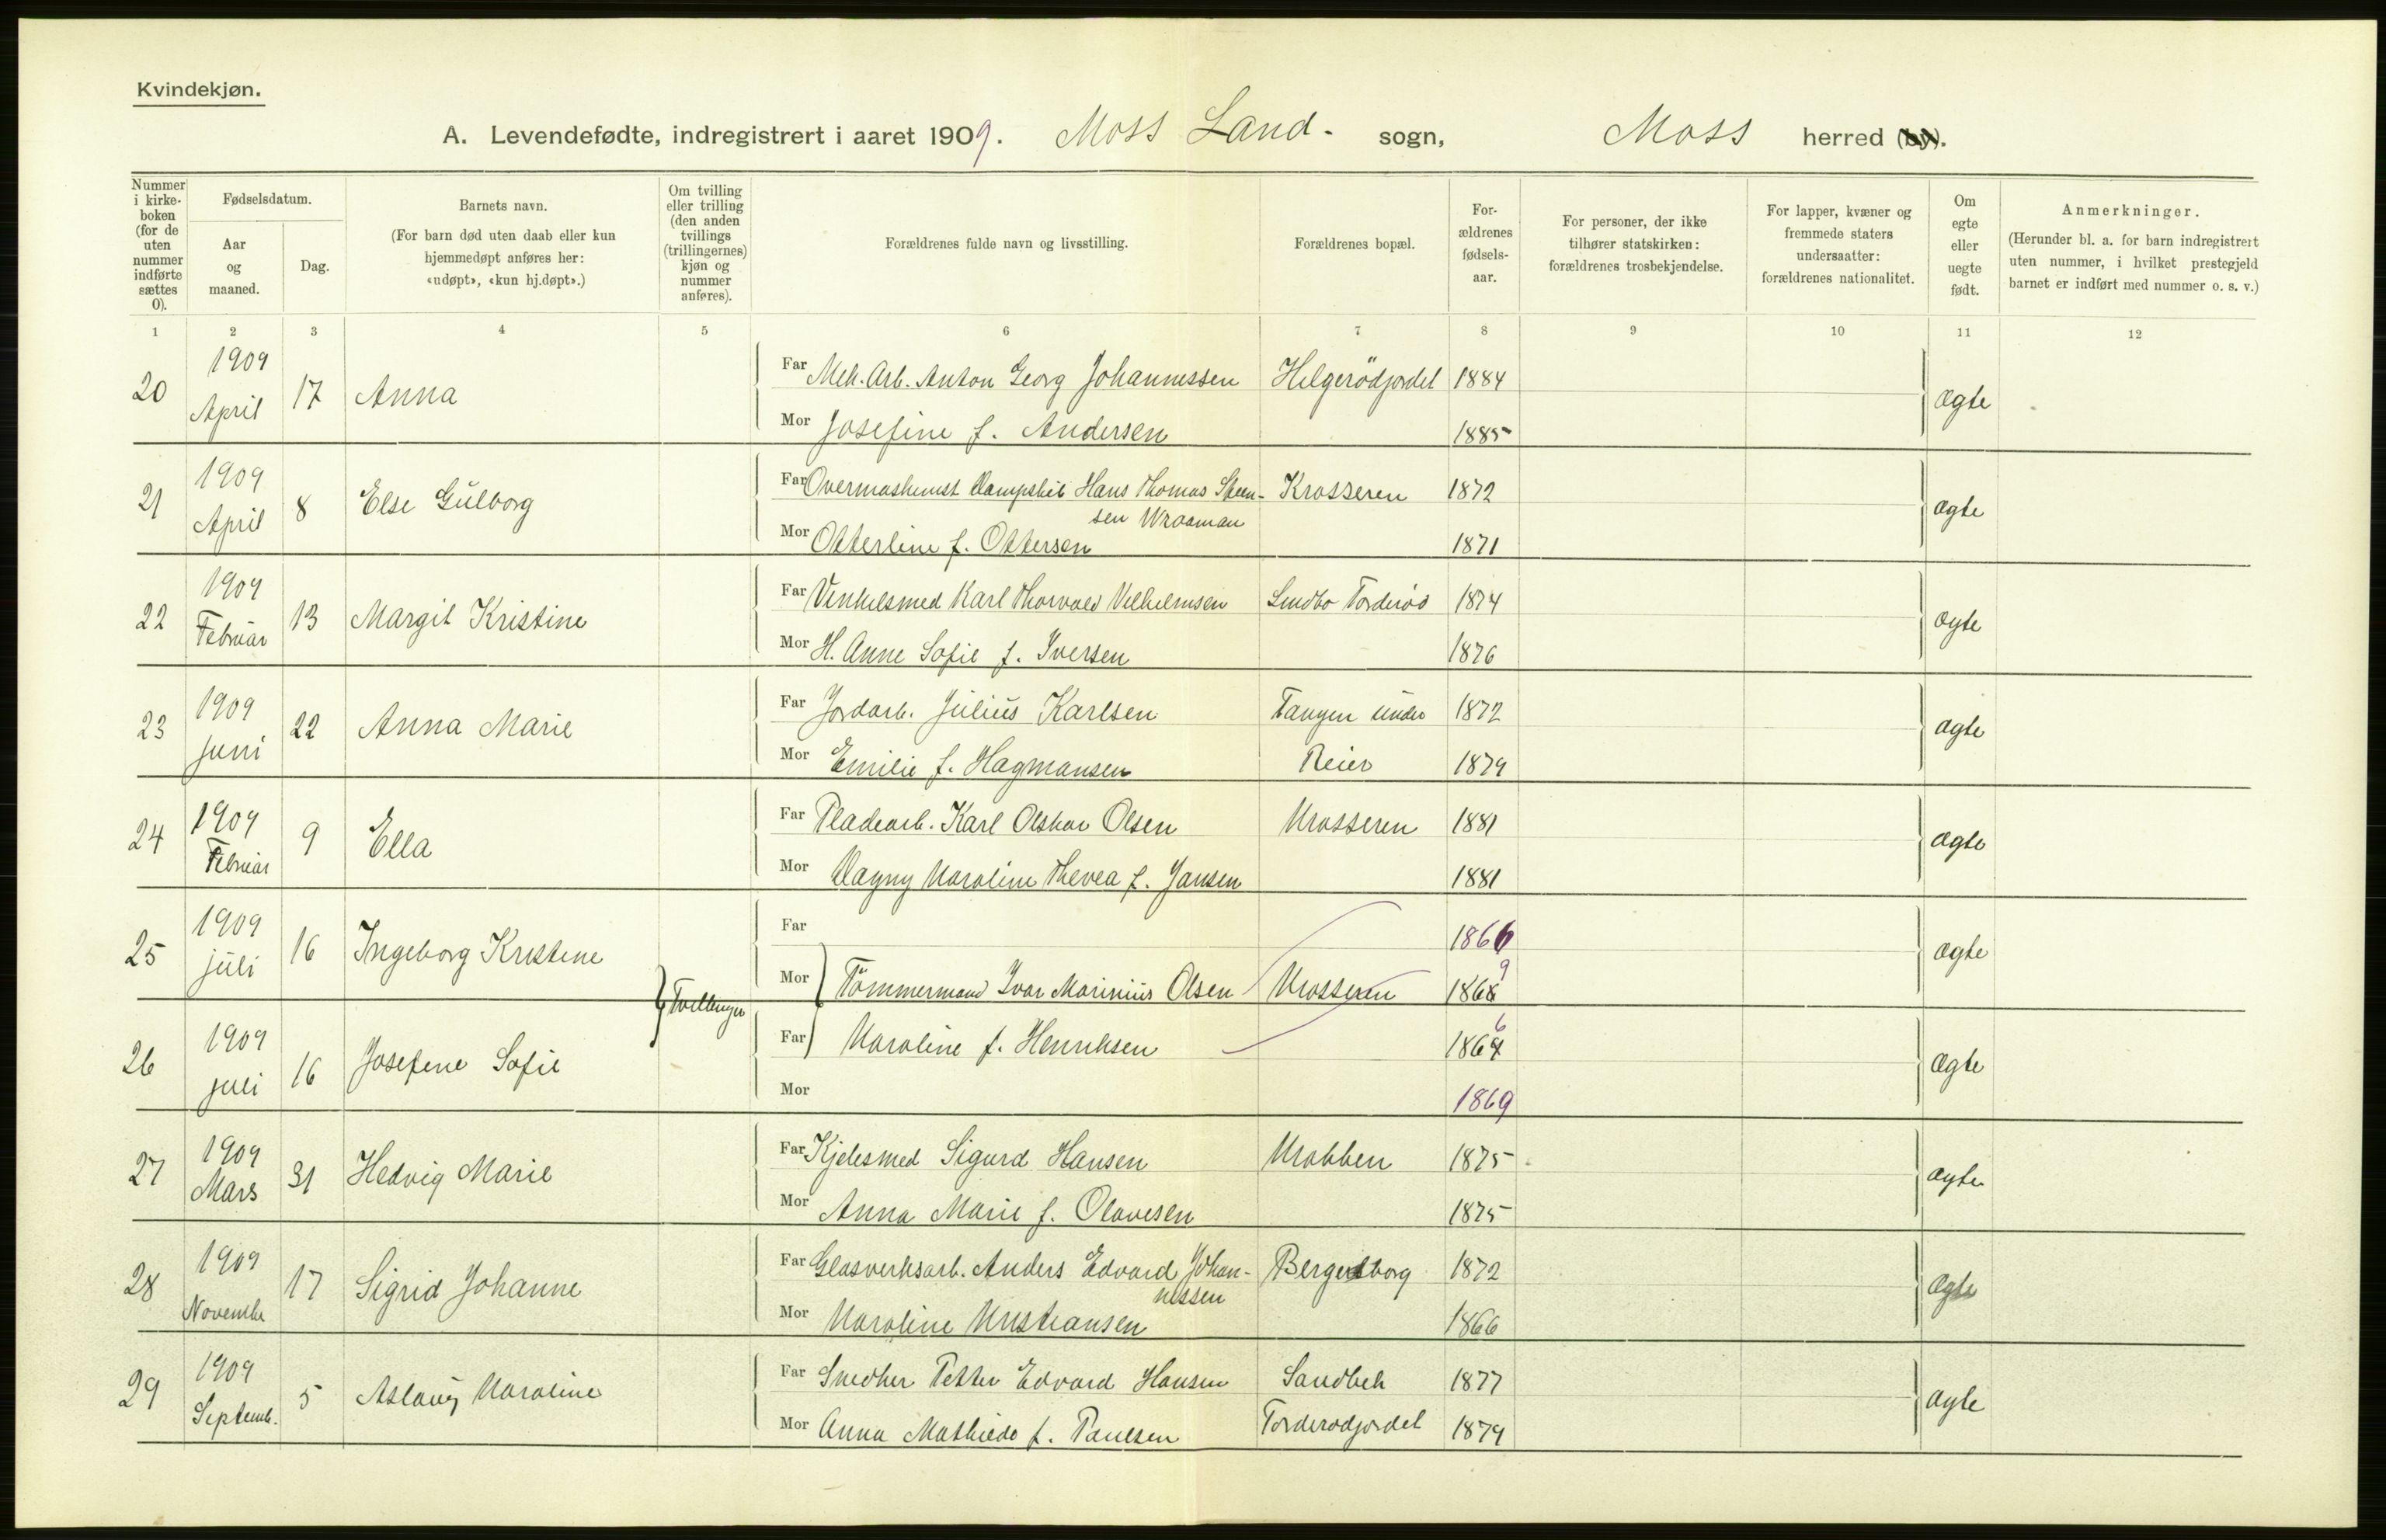 Kvindekjøn.
A. Levendefødte, indregistrert i aaret 1909. Moss Land- sogn, Moss herred (by).
Nummer i kirke-boken (for de uten nummer indførte sættes 0).
Fødselsdatum.
Aar og maaned.
Dag.
Barnets navn.
(For barn død uten daab eller kun hjemmedøpt anføres her: «udøpt», «kun hj.døpt».)
Om tvilling eller trilling (den anden tvillings (trillingernes) kjøn og nummer anføres).
Forældrenes fulde navn og livsstilling.
Forældrenes bopæl.
For-ældrenes fødsels-aar.
For personer, der ikke tilhører statskirken: forældrenes trosbekjendelse.
For lapper, kvæner og fremmede staters undersaatter: forældrenes nationalitet.
Om egte eller uegte født.
Anmerkninger.
(Herunder bl. a. for barn indregistrert uten nummer, i hvilket prestegjeld barnet er indført med nummer o. s. v.)
1 2 3 4 5 6 7 8 9 10 11 12
20 1909 April 17 Anna Far Mek. Arb. Anton Georg Johannessen Helgerödjordet 1884 ægte
Mor Josefine f. Andersen 1885
21 1909 April 8 Else Gulborg Far Overmaskinist Dampskib Hans Thomas Steen- Krosseren 1872 ægte
sen Wraaman
Mor Otterline f. Ottersen 1871
22 1909 Februar 13 Margit Kristine Far Vinkelsmed Karl Thorvald Vilhelmsen Lindbo Torderöd 1874 ægte
Mor H. Anne Sofie f. Iversen 1876
23 1909 Juni 22 Anna Marie Far Jordarb. Julius Karlsen Tangen under 1872 ægte
Mor Emilie f. Hagmansen Reier 1879
24 1909 Februar 9 Ella Far Pladearb. Karl Olskar Olsen Krosseren 1881 ægte
Mor Dagny Karoline Thevea f. Jansen 1881
25 1909 juli 16 Ingeborg Kristine Far 1866 ægte
Tvillinger Mor Tömmermand Ivar Marinius Olsen Krosseren 1869
26 1909 juli 16 Josefine Sofie Far Karoline f. Henriksen 1866 ægte
Mor 1869
27 1909 Mars 31 Hedvig Marie Far Kjelesmed Sigurd Hansen Krabben 1875 ægte
Mor Anna Marie f. Olavesen 1875
28 1909 Novembe 17 Sigrid Johanne Far Glasverksarb. Anders Edvard Johan- Bergersborg 1872 ægte
nessen
Mor Karoline Kristiansen 1866
29 1909 Septemb. 5 Aslaug Karoline Far Snedker Petter Edvard Hansen Sandbek 1877 ægte
Mor Anna Mathilde f. Paulsen Torderodjordet 1879